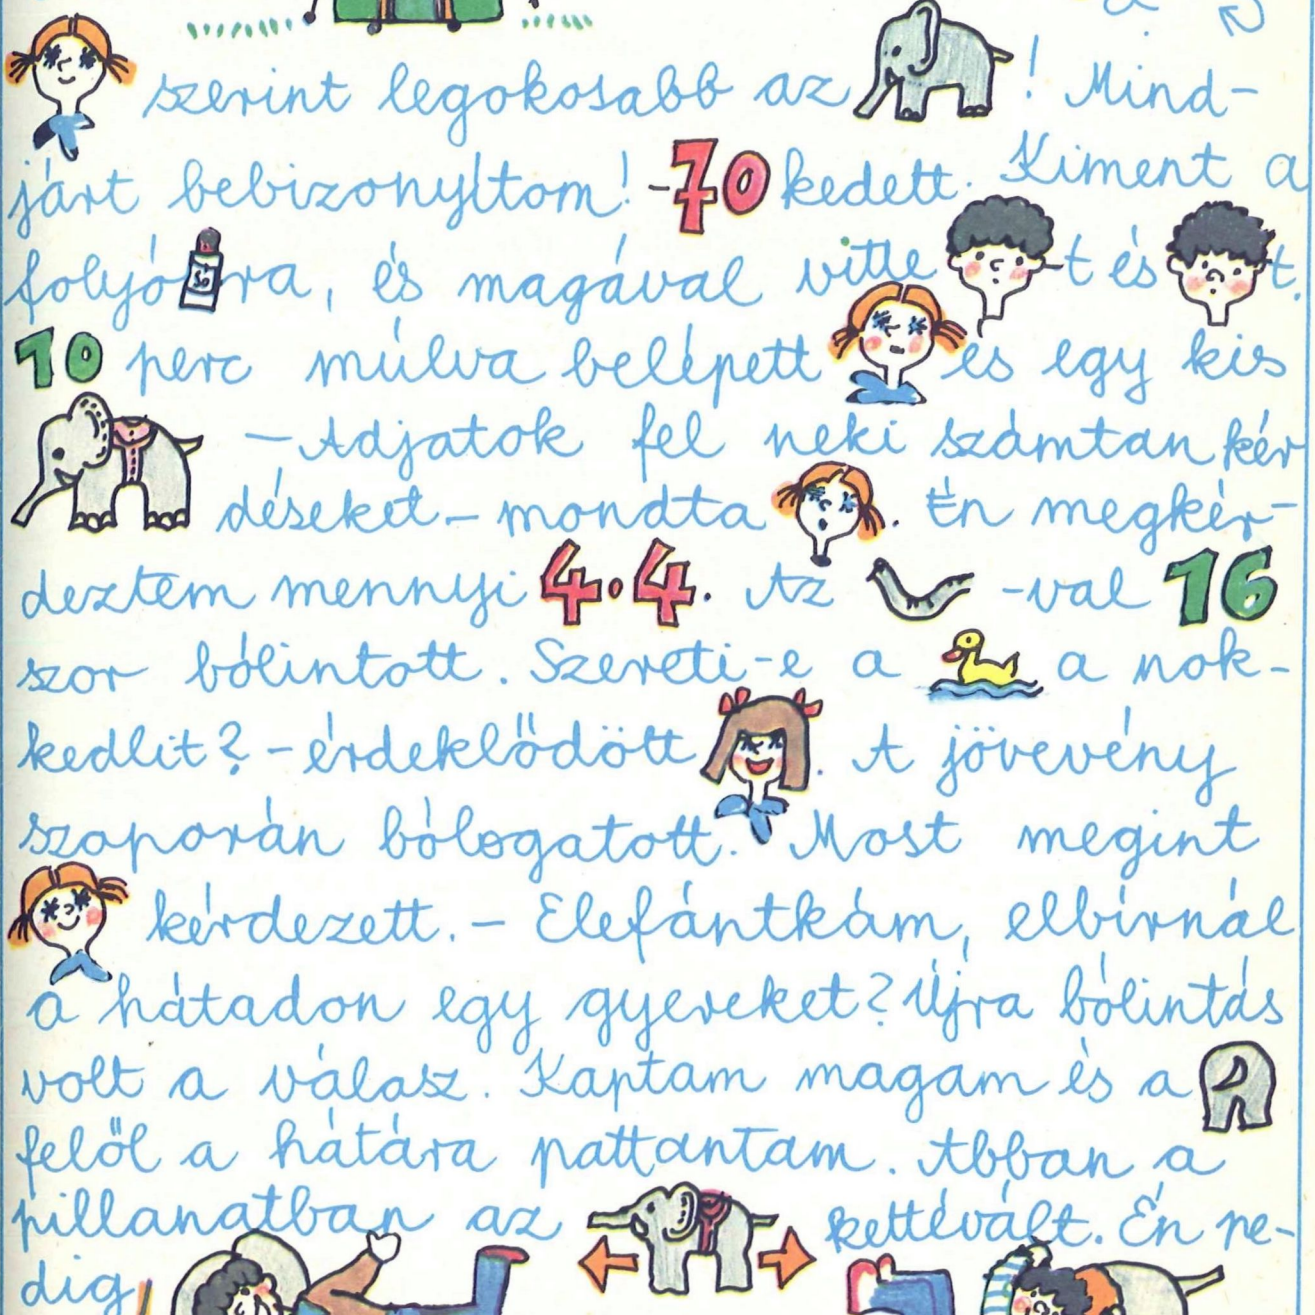 a
szerint legokosabb az ! Mind-
járt bebizonyítom! -70kedett. Kiment a
folyósóra, és magával vitte -t és t.
10 perc múlva belépett és egy kis
- Adjatok fel neki számtan kér
déseket - mondta . Én megkér-
deztem mennyi 4·4. Az -val 16
szor bólintott. Szereti-e a a nok-
kedlit? - érdeklődött . A jövevény
szaporán bólogatott. Most megint
kérdezett. - Elefántkám, elbírnál
a hátadon egy gyereket? Újra bólintás
volt a válasz. Kaptam magam és a
felől a hátára pattantam. Abban a
pillanatban az kettévált. Én pe-
dig